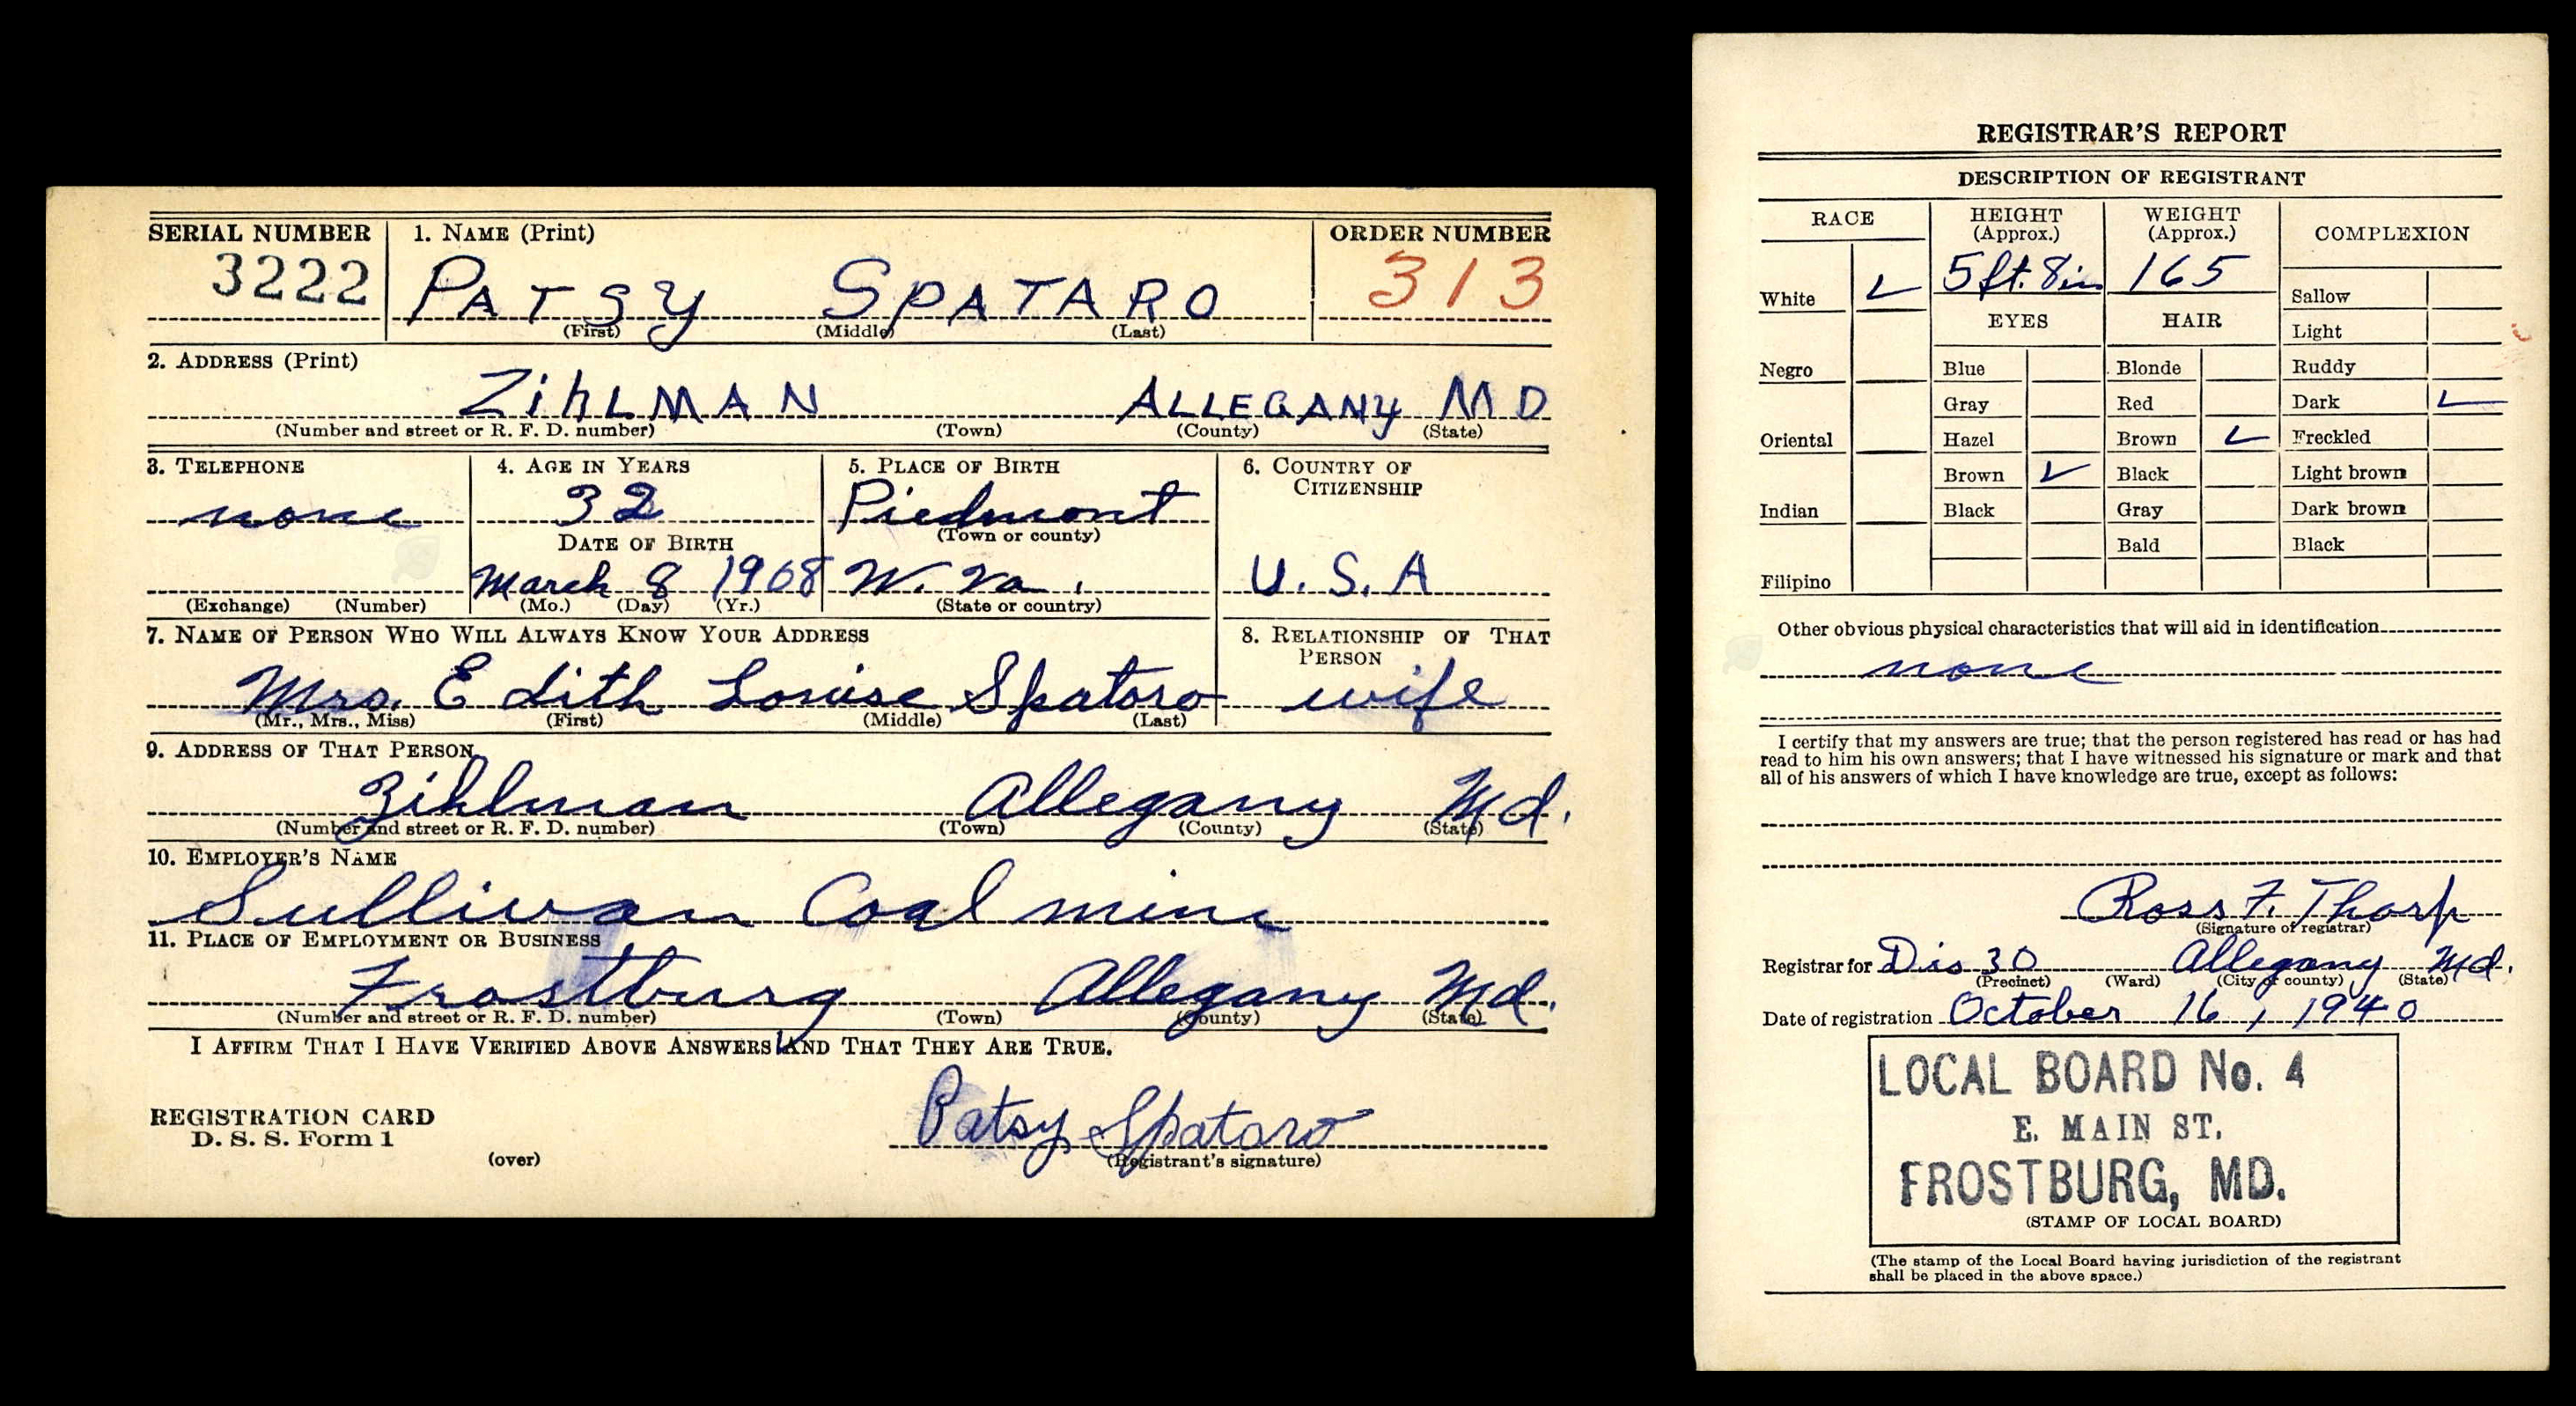 SERIAL NUMBER 1. NAME (Print) ORDER NUMBER
3222 PATSY SPATARO 313
(First) (Middle) (Last)
2. ADDRESS (Print)
ZihLMAN ALLEGANY MD
(Number and street or R. F. D. number) (Town) (County) (State)
3. TELEPHONE 4. AGE IN YEARS 5. PLACE OF BIRTH 6. COUNTRY OF CITIZENSHIP
none 32 Piedmont
(Town or county)
DATE OF BIRTH
March 8 1908 W. Va. U.S.A
(Exchange) (Number) (Mo.) (Day) (Yr.) (State or country)
7. NAME OF PERSON WHO WILL ALWAYS KNOW YOUR ADDRESS 8. RELATIONSHIP OF THAT PERSON
Mrs. Edith Louise Spataro wife
(Mr., Mrs., Miss) (First) (Middle) (Last)
9. ADDRESS OF THAT PERSON
Zihlman Allegany Md.
(Number and street or R. F. D. number) (Town) (County) (State)
10. EMPLOYER'S NAME
Sullivan Coal mine
11. PLACE OF EMPLOYMENT OR BUSINESS
Frostburg Allegany Md.
(Number and street or R. F. D. number) (Town) (County) (State)
I AFFIRM THAT I HAVE VERIFIED ABOVE ANSWERS AND THAT THEY ARE TRUE.
REGISTRATION CARD
D. S. S. Form 1
Patsy Spataro
(over) (Registrant's signature)
REGISTRAR'S REPORT
DESCRIPTION OF REGISTRANT
RACE HEIGHT (Approx.) WEIGHT (Approx.) COMPLEXION
5 ft. 8 in 165
White Sallow
EYES HAIR Light
Negro Blue Blonde Ruddy
Gray Red Dark
Oriental Hazel Brown Freckled
Brown Black Light brown
Indian Black Gray Dark brown
Bald Black
Filipino
Other obvious physical characteristics that will aid in identification
none
I certify that my answers are true; that the person registered has read or has had
read to him his own answers; that I have witnessed his signature or mark and that
all of his answers of which I have knowledge are true, except as follows:
Ross F. Tharp
(Signature of registrar)
Registrar for Dis 30 Allegany Md.
(Precinct) (Ward) (City or county) (State)
Date of registration October 16, 1940
LOCAL BOARD No. 4
E. MAIN ST.
FROSTBURG, MD.
(STAMP OF LOCAL BOARD)
(The stamp of the Local Board having jurisdiction of the registrant
shall be placed in the above space.)